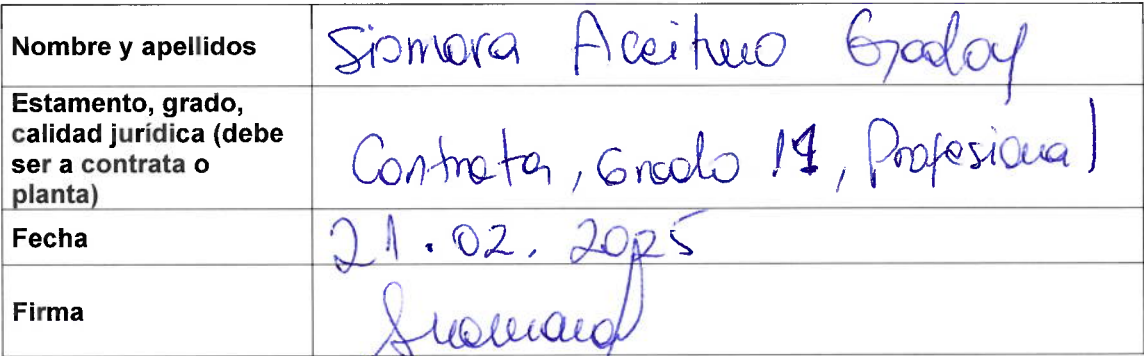 Nombre y apellidos
Siomara Aceituno Godoy
Estamento, grado,
calidad jurídica (debe
ser a contrata o
planta)
Contrata, Grado 11, Profesional
Fecha
21.02.2025
Firma